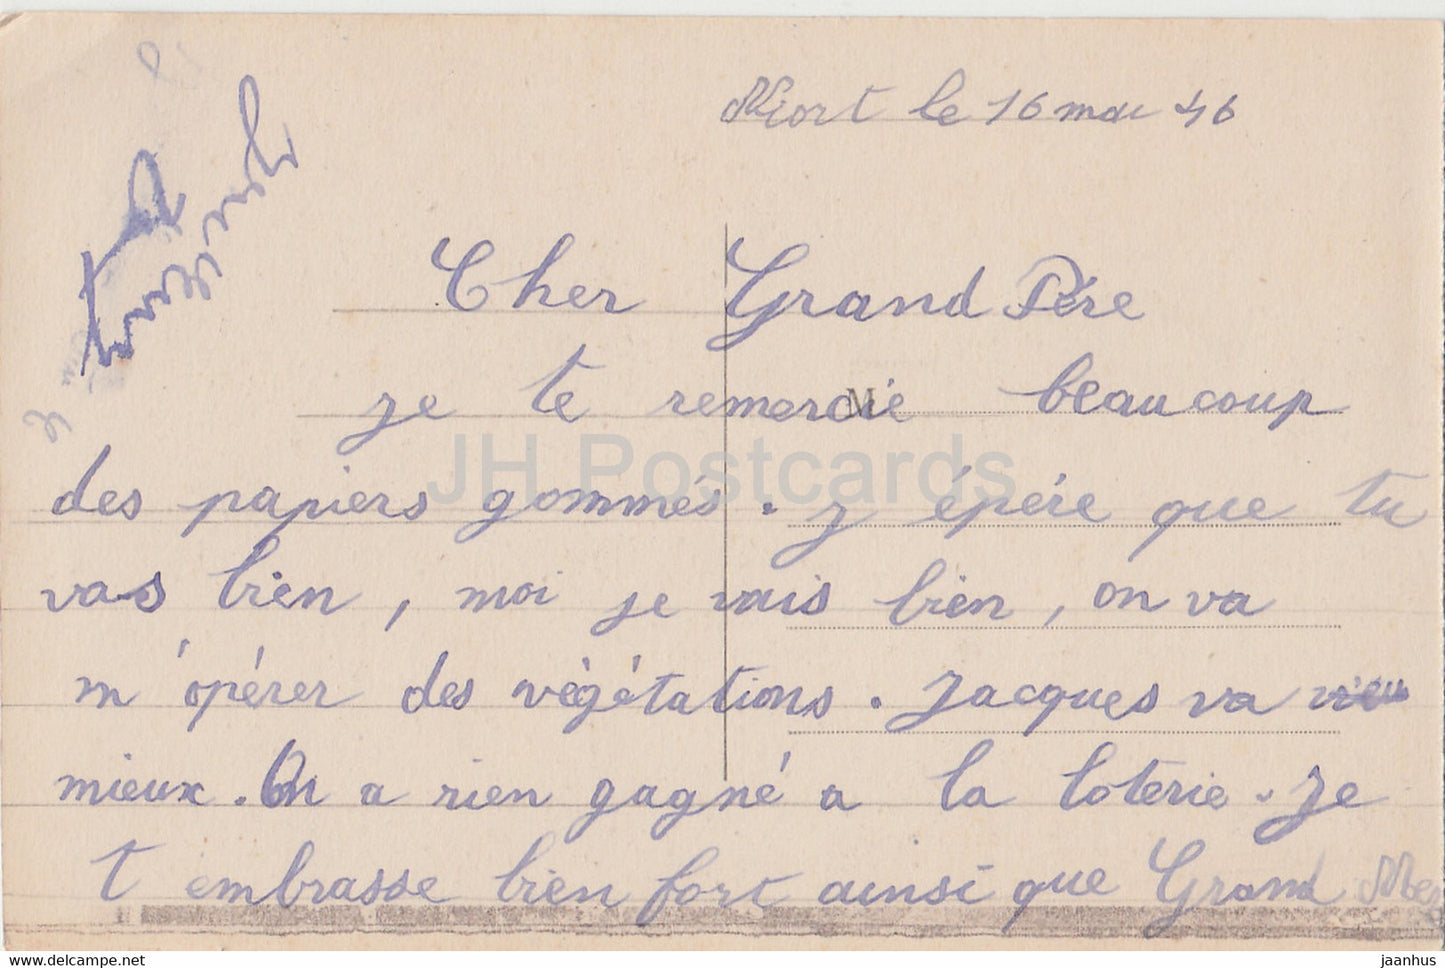 Niort le 16 mai 46
Cher Grand Père
je te remercie beaucoup
M
des papiers gommés. j épére que tu
vas bien, moi je vais bien, on va
m'opérer des végétations. Jacques va
mieux. On a rien gagné a la loterie. Je
t embrasse bien fort ainsi que Grand Mer
JH Postcards
www.delcampe.net
jaanhus